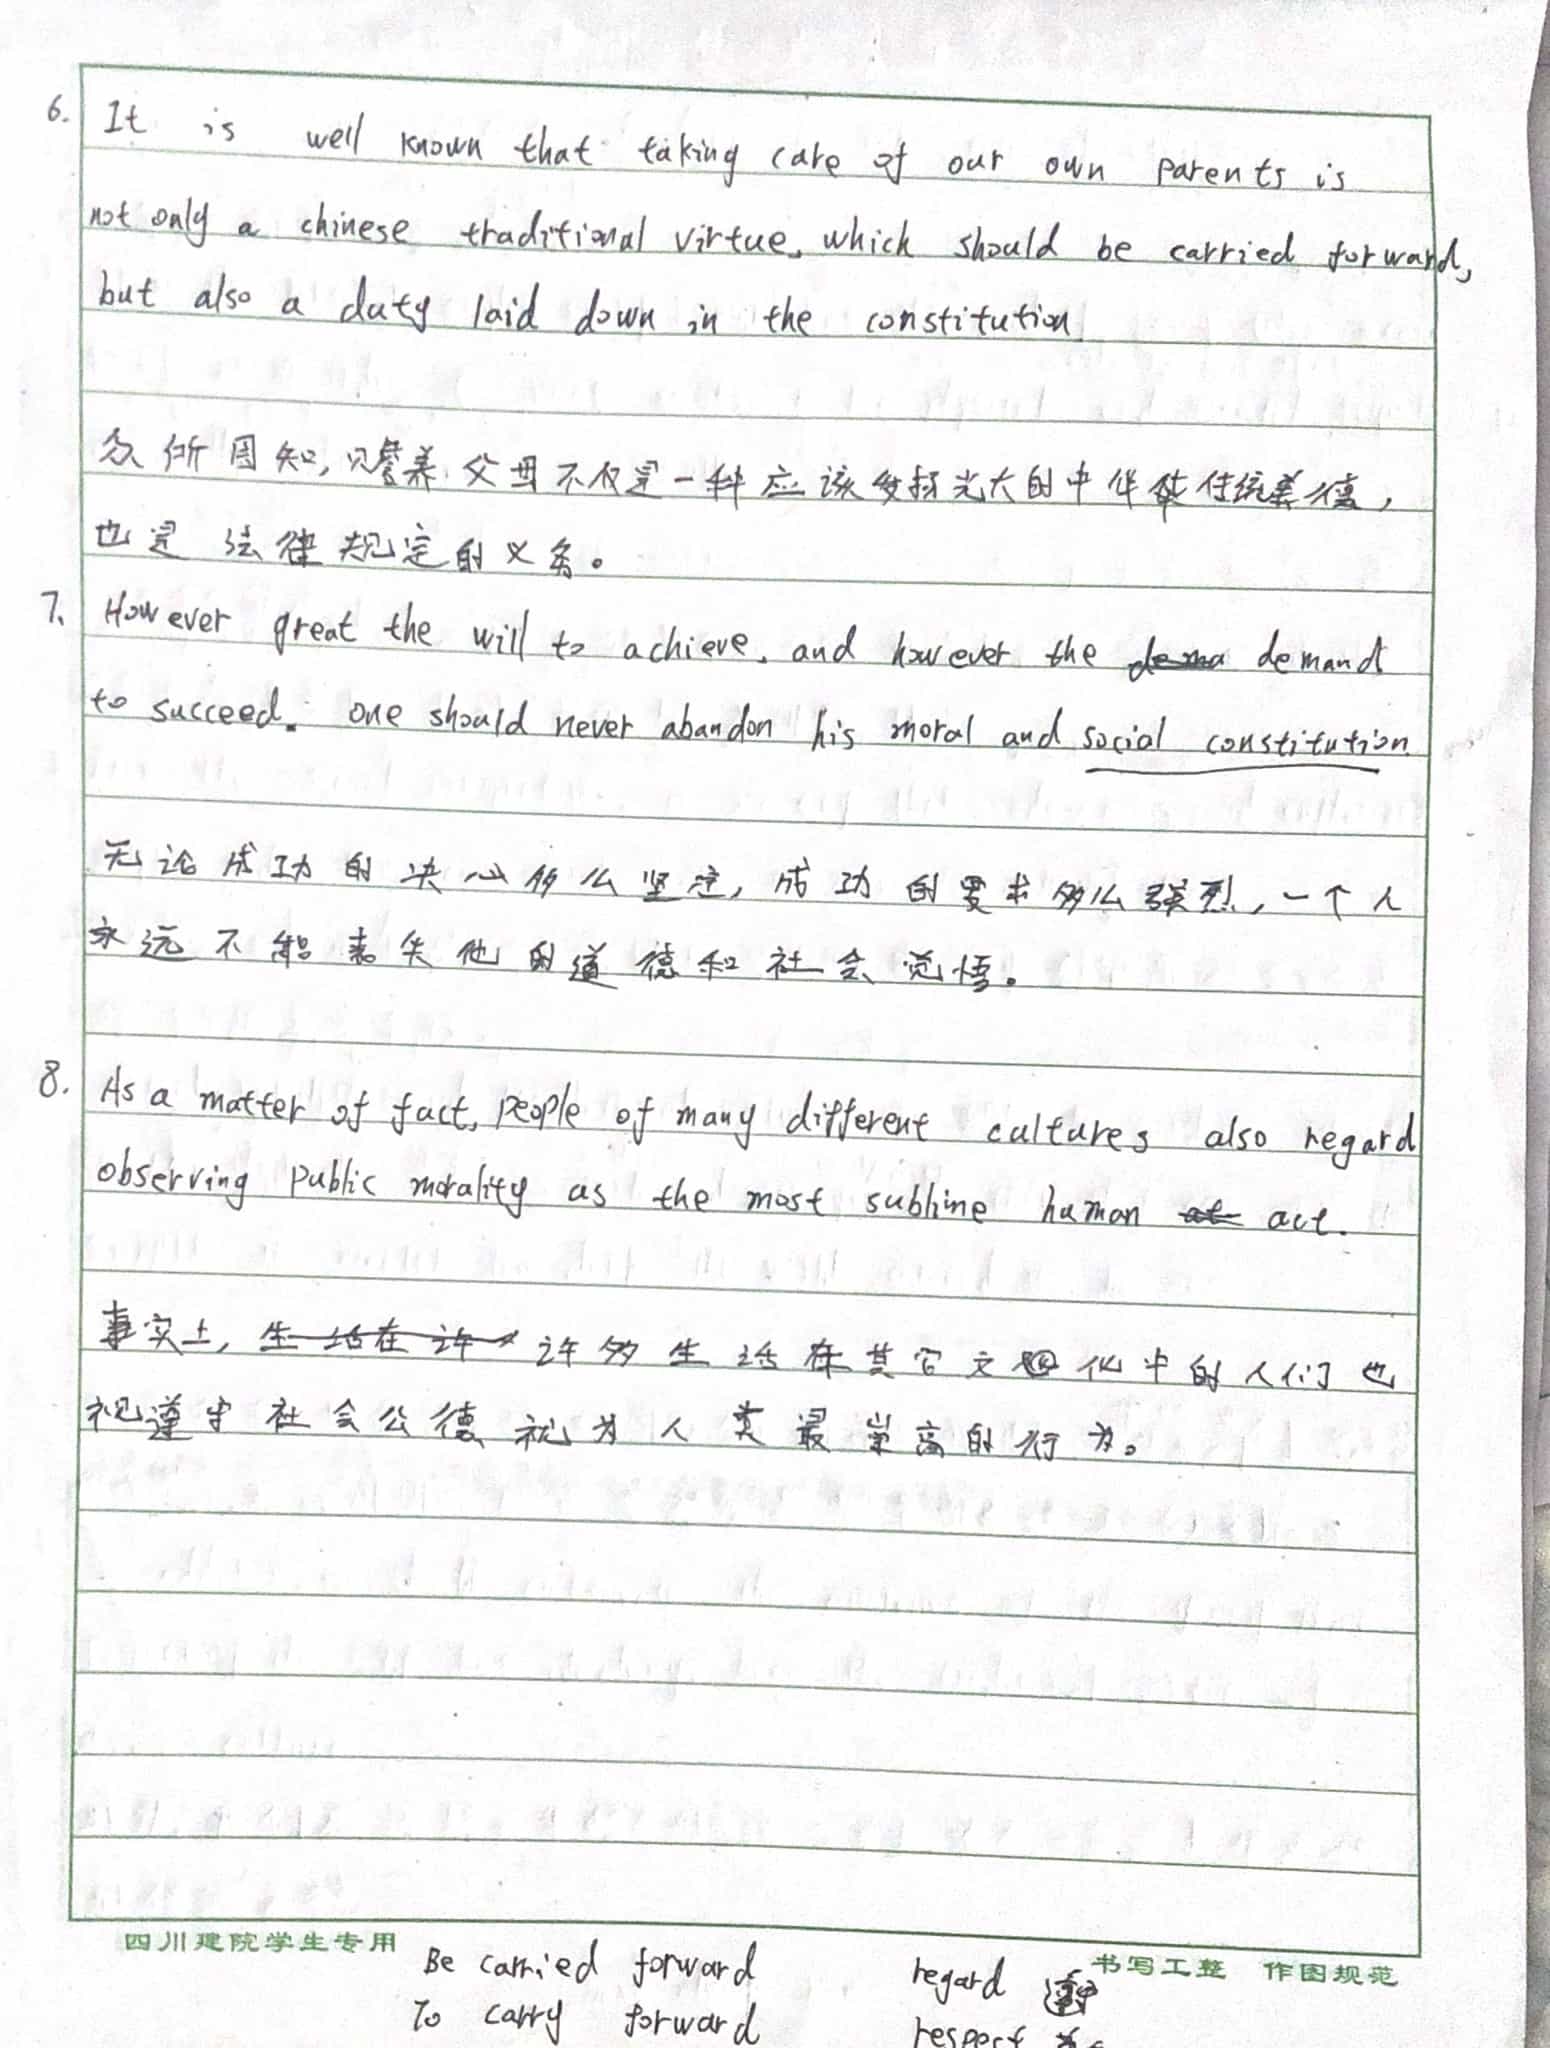 6. It is well known that taking care of our own parents is
not only a chinese traditional virtue, which should be carried forward,
but also a duty laid down in the constitution
众所周知,赡养父母不仅是一种应该发扬光大的中华传统美德,
也是法律规定的义务。
7. However great the will to achieve, and however the demand
to succeed. one should never abandon his moral and social constitution.
无论成功的决心多么坚定,成功的要求多么强烈,一个人
永远不能丧失他的道德和社会觉悟。
8. As a matter of fact, people of many different cultures also regard
observing public morality as the most sublime human act.
事实上, 生活在许 许多生活在其它文化中的人们也
视遵守社会公德就为人类最崇高的行为。
四川建院学生专用
书写工整 作图规范
Be carried forward regard
To carry forward respect